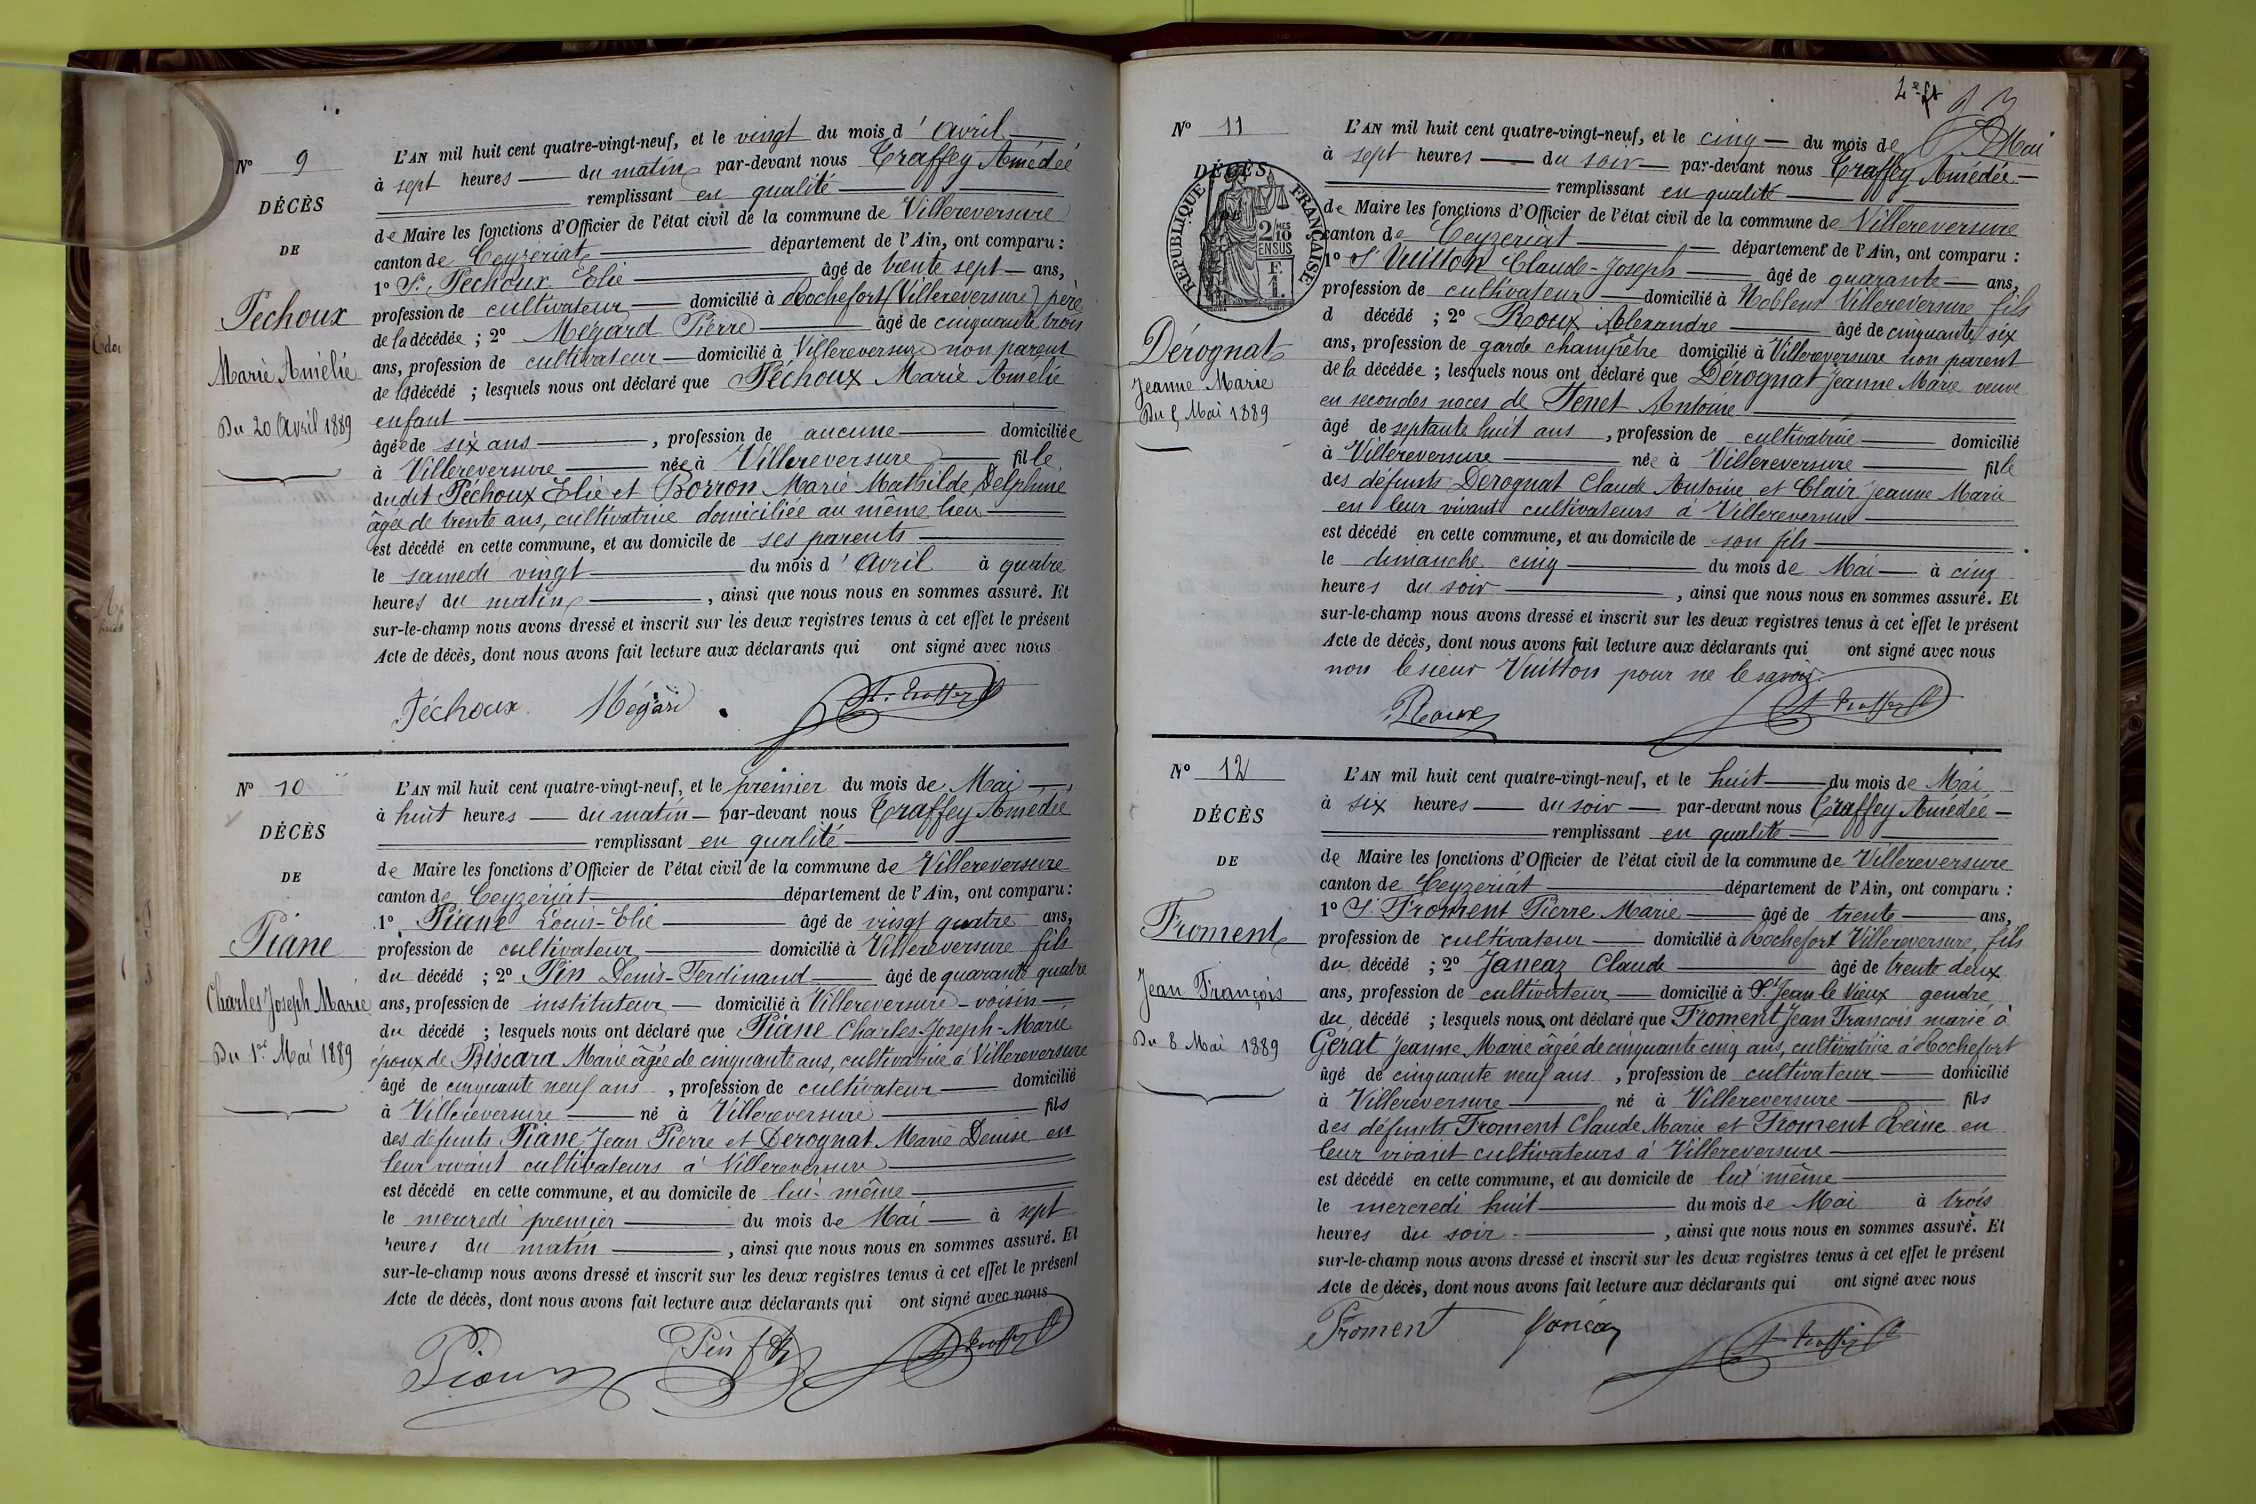 N° 9
DÉCÈS
DE
Péchoux
Marie Amélie
Du 20 Avril 1889
L'AN mil huit cent quatre-vingt-neuf, et le vingt du mois d'Avril
à sept heures du matin par-devant nous Traffey Amédée
remplissant en qualité
de Maire les fonctions d'Officier de l'état civil de la commune de Villereversure
canton de Ceyzériat département de l'Ain, ont comparu :
1° Sr. Péchoux Elie âgé de trente sept ans,
profession de cultivateur domicilié à Rochefort (Villereversure) père
de la décédée ; 2° Mégard Pierre âgé de cinquante trois
ans, profession de cultivateur domicilié à Villereversure non parent
de la décédé ; lesquels nous ont déclaré que Péchoux Marie Amélie
enfant
âgée de six ans , profession de aucune domiciliée
à Villereversure née à Villereversure fille
dudit Péchoux Elie et Borron Marie Mathilde Delphine
âgée de trente ans, cultivatrice domiciliée au même lieu
est décédé en cette commune, et au domicile de ses parents
le samedi vingt du mois d'Avril à quatre
heures du matin , ainsi que nous nous en sommes assuré. Et
sur-le-champ nous avons dressé et inscrit sur les deux registres tenus à cet effet le présent
Acte de décès, dont nous avons fait lecture aux déclarants qui ont signé avec nous
Péchoux Mégard A. Traffey
N° 10
DÉCÈS
DE
Piane
Charles Joseph Marie
Du 1er Mai 1889
L'AN mil huit cent quatre-vingt-neuf, et le premier du mois de Mai
à huit heures du matin par-devant nous Traffey Amédée
remplissant en qualité
de Maire les fonctions d'Officier de l'état civil de la commune de Villereversure
canton de Ceyzériat département de l'Ain, ont comparu :
1° Piane Louis-Elie âgé de vingt quatre ans,
profession de cultivateur domicilié à Villereversure fils
du décédé ; 2° Pin Denis-Ferdinand âgé de quarante quatre
ans, profession de instituteur domicilié à Villereversure - voisin
du décédé ; lesquels nous ont déclaré que Piane Charles-Joseph-Marie
époux de Biscara Marie âgée de cinquante ans, cultivatrice à Villereversure
âgé de cinquante neuf ans , profession de cultivateur domicilié
à Villereversure né à Villereversure fils
des défunts Piane Jean Pierre et Derognat Marie Denise en
leur vivant cultivateurs à Villereversure
est décédé en cette commune, et au domicile de lui-même
le mercredi premier du mois de Mai à sept
heures du matin , ainsi que nous nous en sommes assuré. Et
sur-le-champ nous avons dressé et inscrit sur les deux registres tenus à cet effet le présent
Acte de décès, dont nous avons fait lecture aux déclarants qui ont signé avec nous
Piane Pin A. Traffey
N° 11
DÉCÈS
RÉPUBLIQUE FRANÇAISE
2/10 MES
EN SUS
F.
1.
Dérognat
Jeanne Marie
Du 5 Mai 1889
L'AN mil huit cent quatre-vingt-neuf, et le cinq du mois de Mai
à sept heures du soir par-devant nous Traffey Amédée
remplissant en qualité
de Maire les fonctions d'Officier de l'état civil de la commune de Villereversure
canton de Ceyzériat département de l'Ain, ont comparu :
1° Sr Vuitton Claude-Joseph âgé de quarante ans,
profession de cultivateur domicilié à Noblens Villereversure fils
d décédé ; 2° Roux Alexandre âgé de cinquante six
ans, profession de garde champêtre domicilié à Villereversure non parent
de la décédée ; lesquels nous ont déclaré que Dérognat Jeanne Marie veuve
en secondes noces de Tenet Antoine
âgé de septante huit ans , profession de cultivatrice domicilié
à Villereversure née à Villereversure fille
des défunts Derognat Claude Antoine et Clair Jeanne Marie
en leur vivant cultivateurs à Villereversure
est décédé en cette commune, et au domicile de son fils
le dimanche cinq du mois de Mai à cinq
heures du soir , ainsi que nous nous en sommes assuré. Et
sur-le-champ nous avons dressé et inscrit sur les deux registres tenus à cet effet le présent
Acte de décès, dont nous avons fait lecture aux déclarants qui ont signé avec nous
non le sieur Vuitton pour ne le savoir.
Roux A. Traffey
N° 12
DÉCÈS
DE
Froment
Jean François
Du 8 Mai 1889
L'AN mil huit cent quatre-vingt-neuf, et le huit du mois de Mai
à six heures du soir par-devant nous Traffey Amédée
remplissant en qualité
de Maire les fonctions d'Officier de l'état civil de la commune de Villereversure
canton de Ceyzériat département de l'Ain, ont comparu :
1° Sr Froment Pierre Marie âgé de trente ans,
profession de cultivateur domicilié à Rochefort Villereversure, fils
du décédé ; 2° Janeaz Claude âgé de trente deux
ans, profession de cultivateur domicilié à St Jean le Vieux gendre
du décédé ; lesquels nous ont déclaré que Froment Jean François marié à
Gérat Jeanne Marie âgée de cinquante cinq ans, cultivatrice à Rochefort
âgé de cinquante neuf ans , profession de cultivateur domicilié
à Villereversure né à Villereversure fils
des défunts Froment Claude Marie et Froment Reine en
leur vivant cultivateurs à Villereversure
est décédé en cette commune, et au domicile de lui même
le mercredi huit du mois de Mai à trois
heures du soir , ainsi que nous nous en sommes assuré. Et
sur-le-champ nous avons dressé et inscrit sur les deux registres tenus à cet effet le présent
Acte de décès, dont nous avons fait lecture aux déclarants qui ont signé avec nous
Froment Janeaz A. Traffey